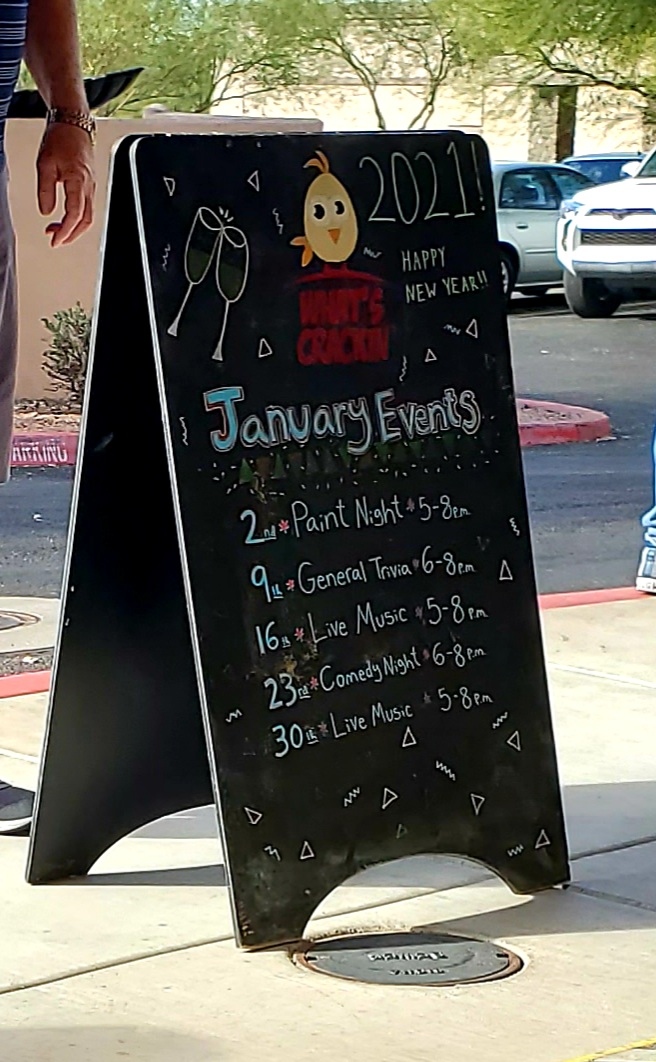 2021!
HAPPY
NEW YEAR!!
WHAT'S
CRACKIN
January Events
2nd * Paint Night * 5-8pm
9th * General Trivia * 6-8p.m
16th * Live Music * 5-8p.m
23rd * Comedy Night * 6-8p.m
30th * Live Music * 5-8p.m
ARKING